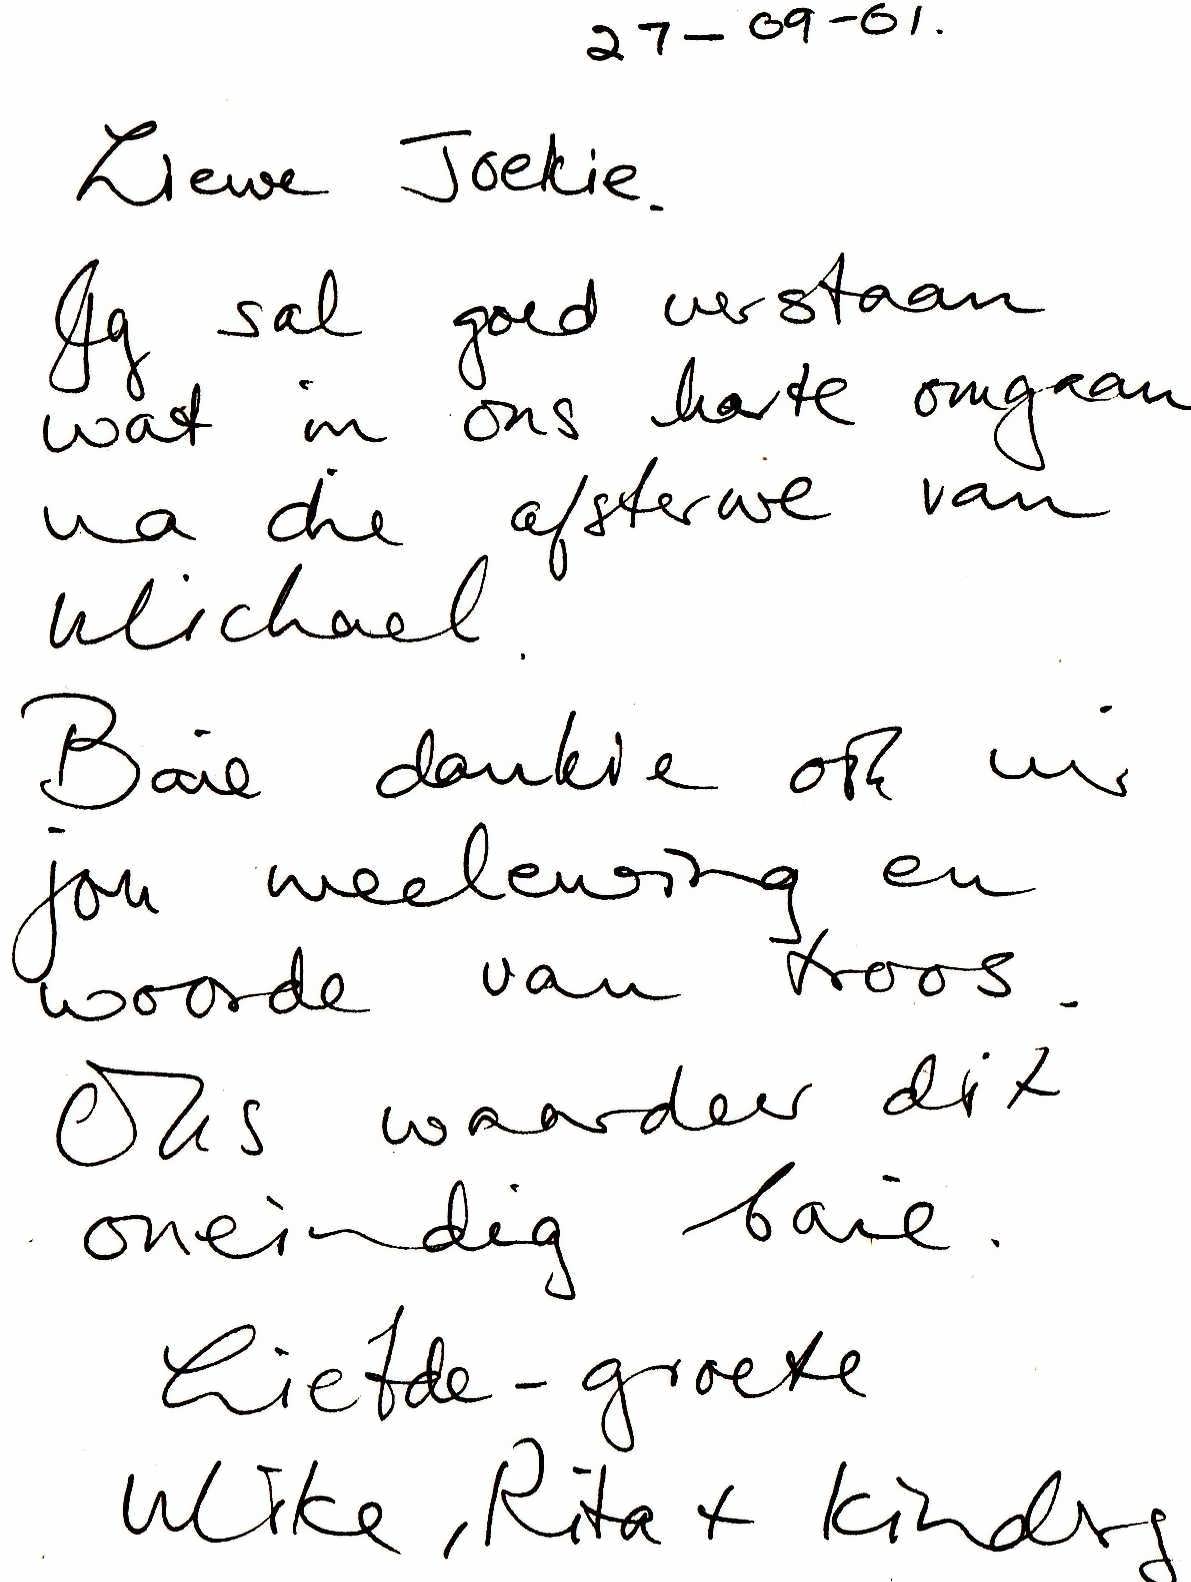 27-09-01.
Liewe Joekie.
Jy sal goed verstaan
wat in ons harte omgaan
na die afsterwe van
Michael.
Baie dankie ook vir
jou meelewing en
woorde van troos.
Ons waardeer dit
oneindig baie.
Liefde-groete
Mike, Rita +